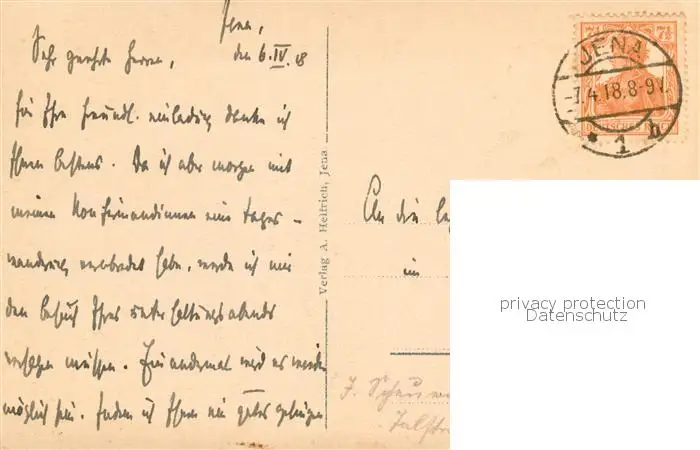 Jena,
den 6.IV.18
Sehr geehrte Herren,
für Ihre freundl. Einladung danke ich
Ihnen bestens. Da ich aber morgen mit
meinen Konfirmandinnen eine Tages-
wanderung verabredet habe, werde ich mir
den Besuch Ihres Unterhaltungsabends
versagen müssen. Ein andermal wird es
möglich sein. Indem ich Ihnen ein gutes Gelingen
Verlag A. Helfrich, Jena
An die
im
JENA
-7.4.18.8-9V.
* 1 b
7½ 7½
DEUTSCHES
privacy protection
Datenschutz